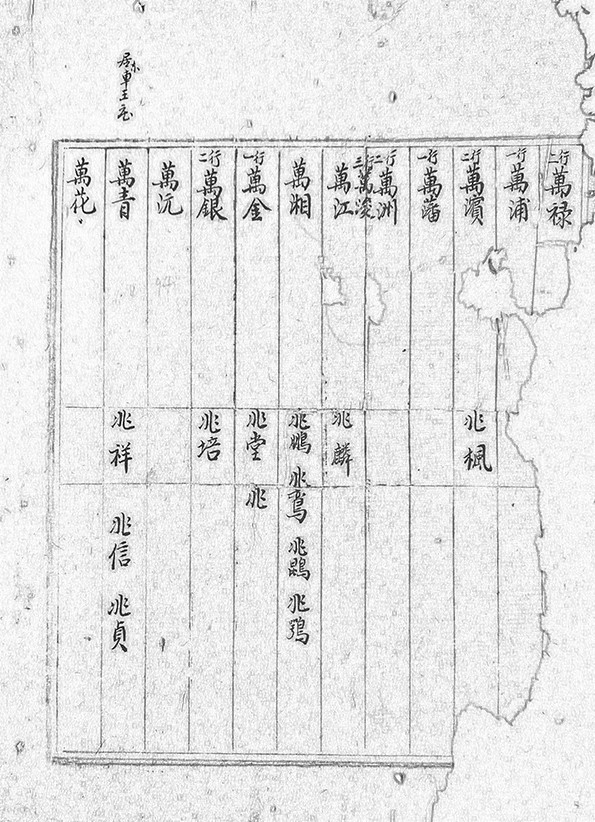 二行 萬禄
一行 萬浦
二行 萬濱 兆楓
一行 萬藩
二行 萬洲
三行 萬浚
萬江 兆麟
萬湘 兆鵬 兆鸞 兆鵾 兆鶚
一行 萬金 兆堂 兆
二行 萬銀 兆培
萬沅
萬青 兆祥 兆信 兆貞
萬花